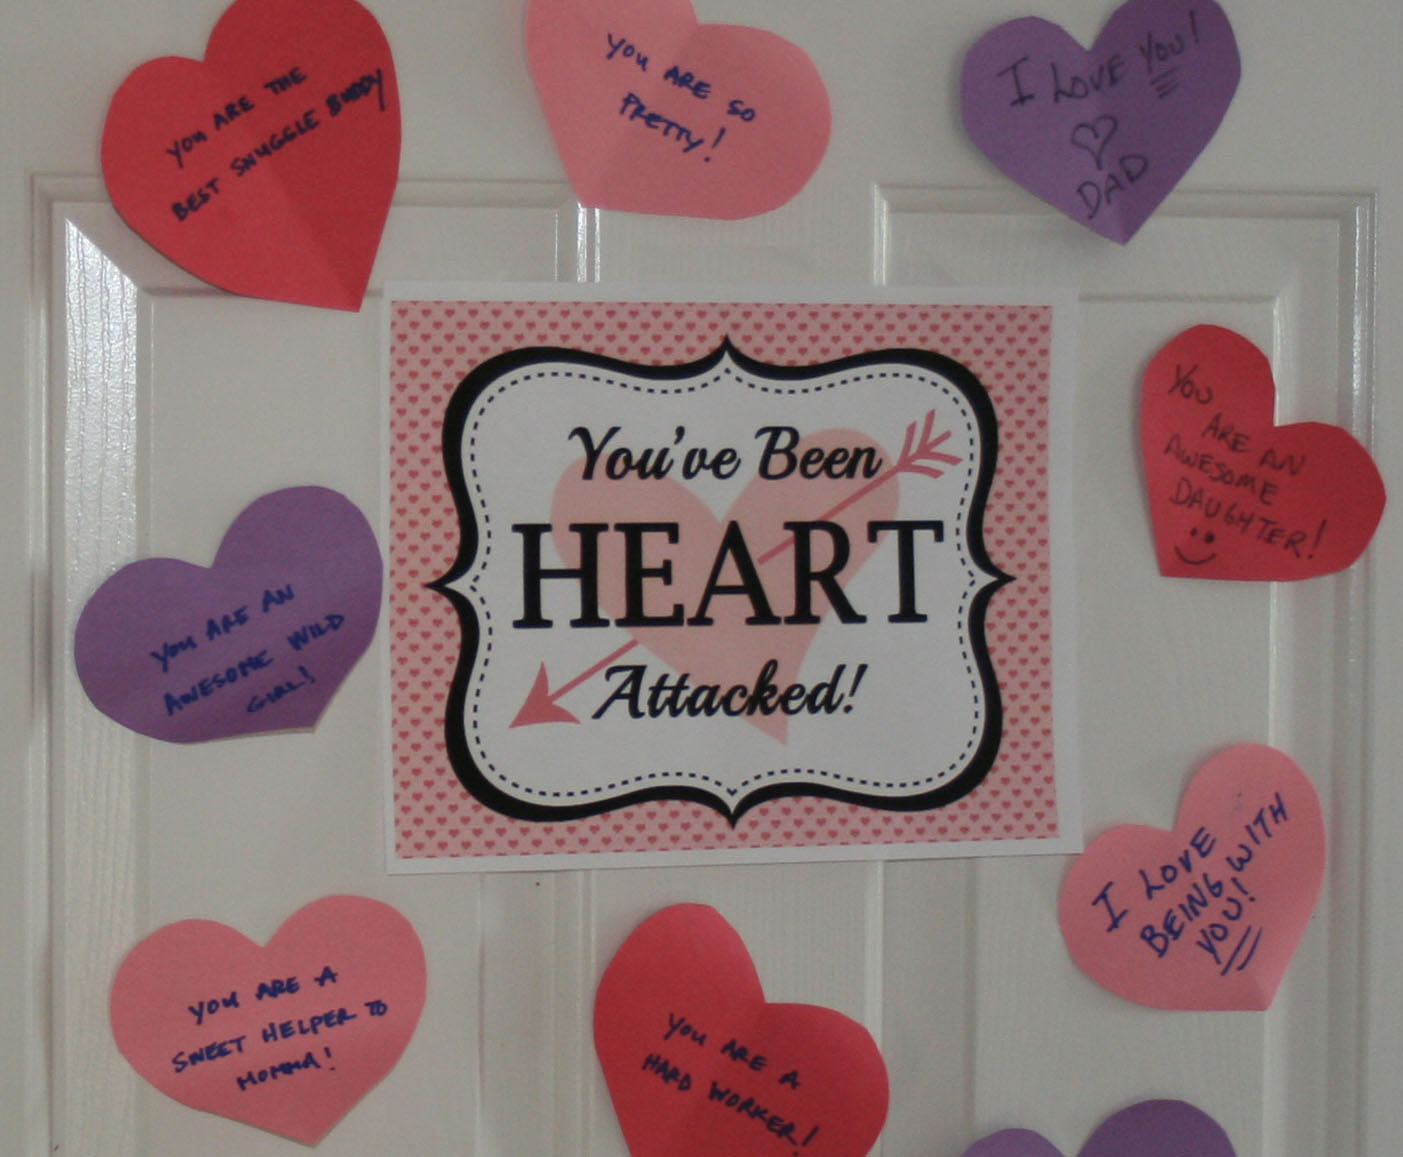 YOU ARE THE
BEST SNUGGLE BUDDY
YOU ARE SO
PRETTY!
I LOVE YOU!
♡
DAD
You've Been
HEART
Attacked!
YOU
ARE AN
AWESOME
DAUGHTER!
YOU ARE AN
AWESOME WILD
GIRL!
I LOVE
BEING WITH
YOU!
YOU ARE A
SWEET HELPER TO
MOMMA!
YOU ARE A
HARD WORKER!